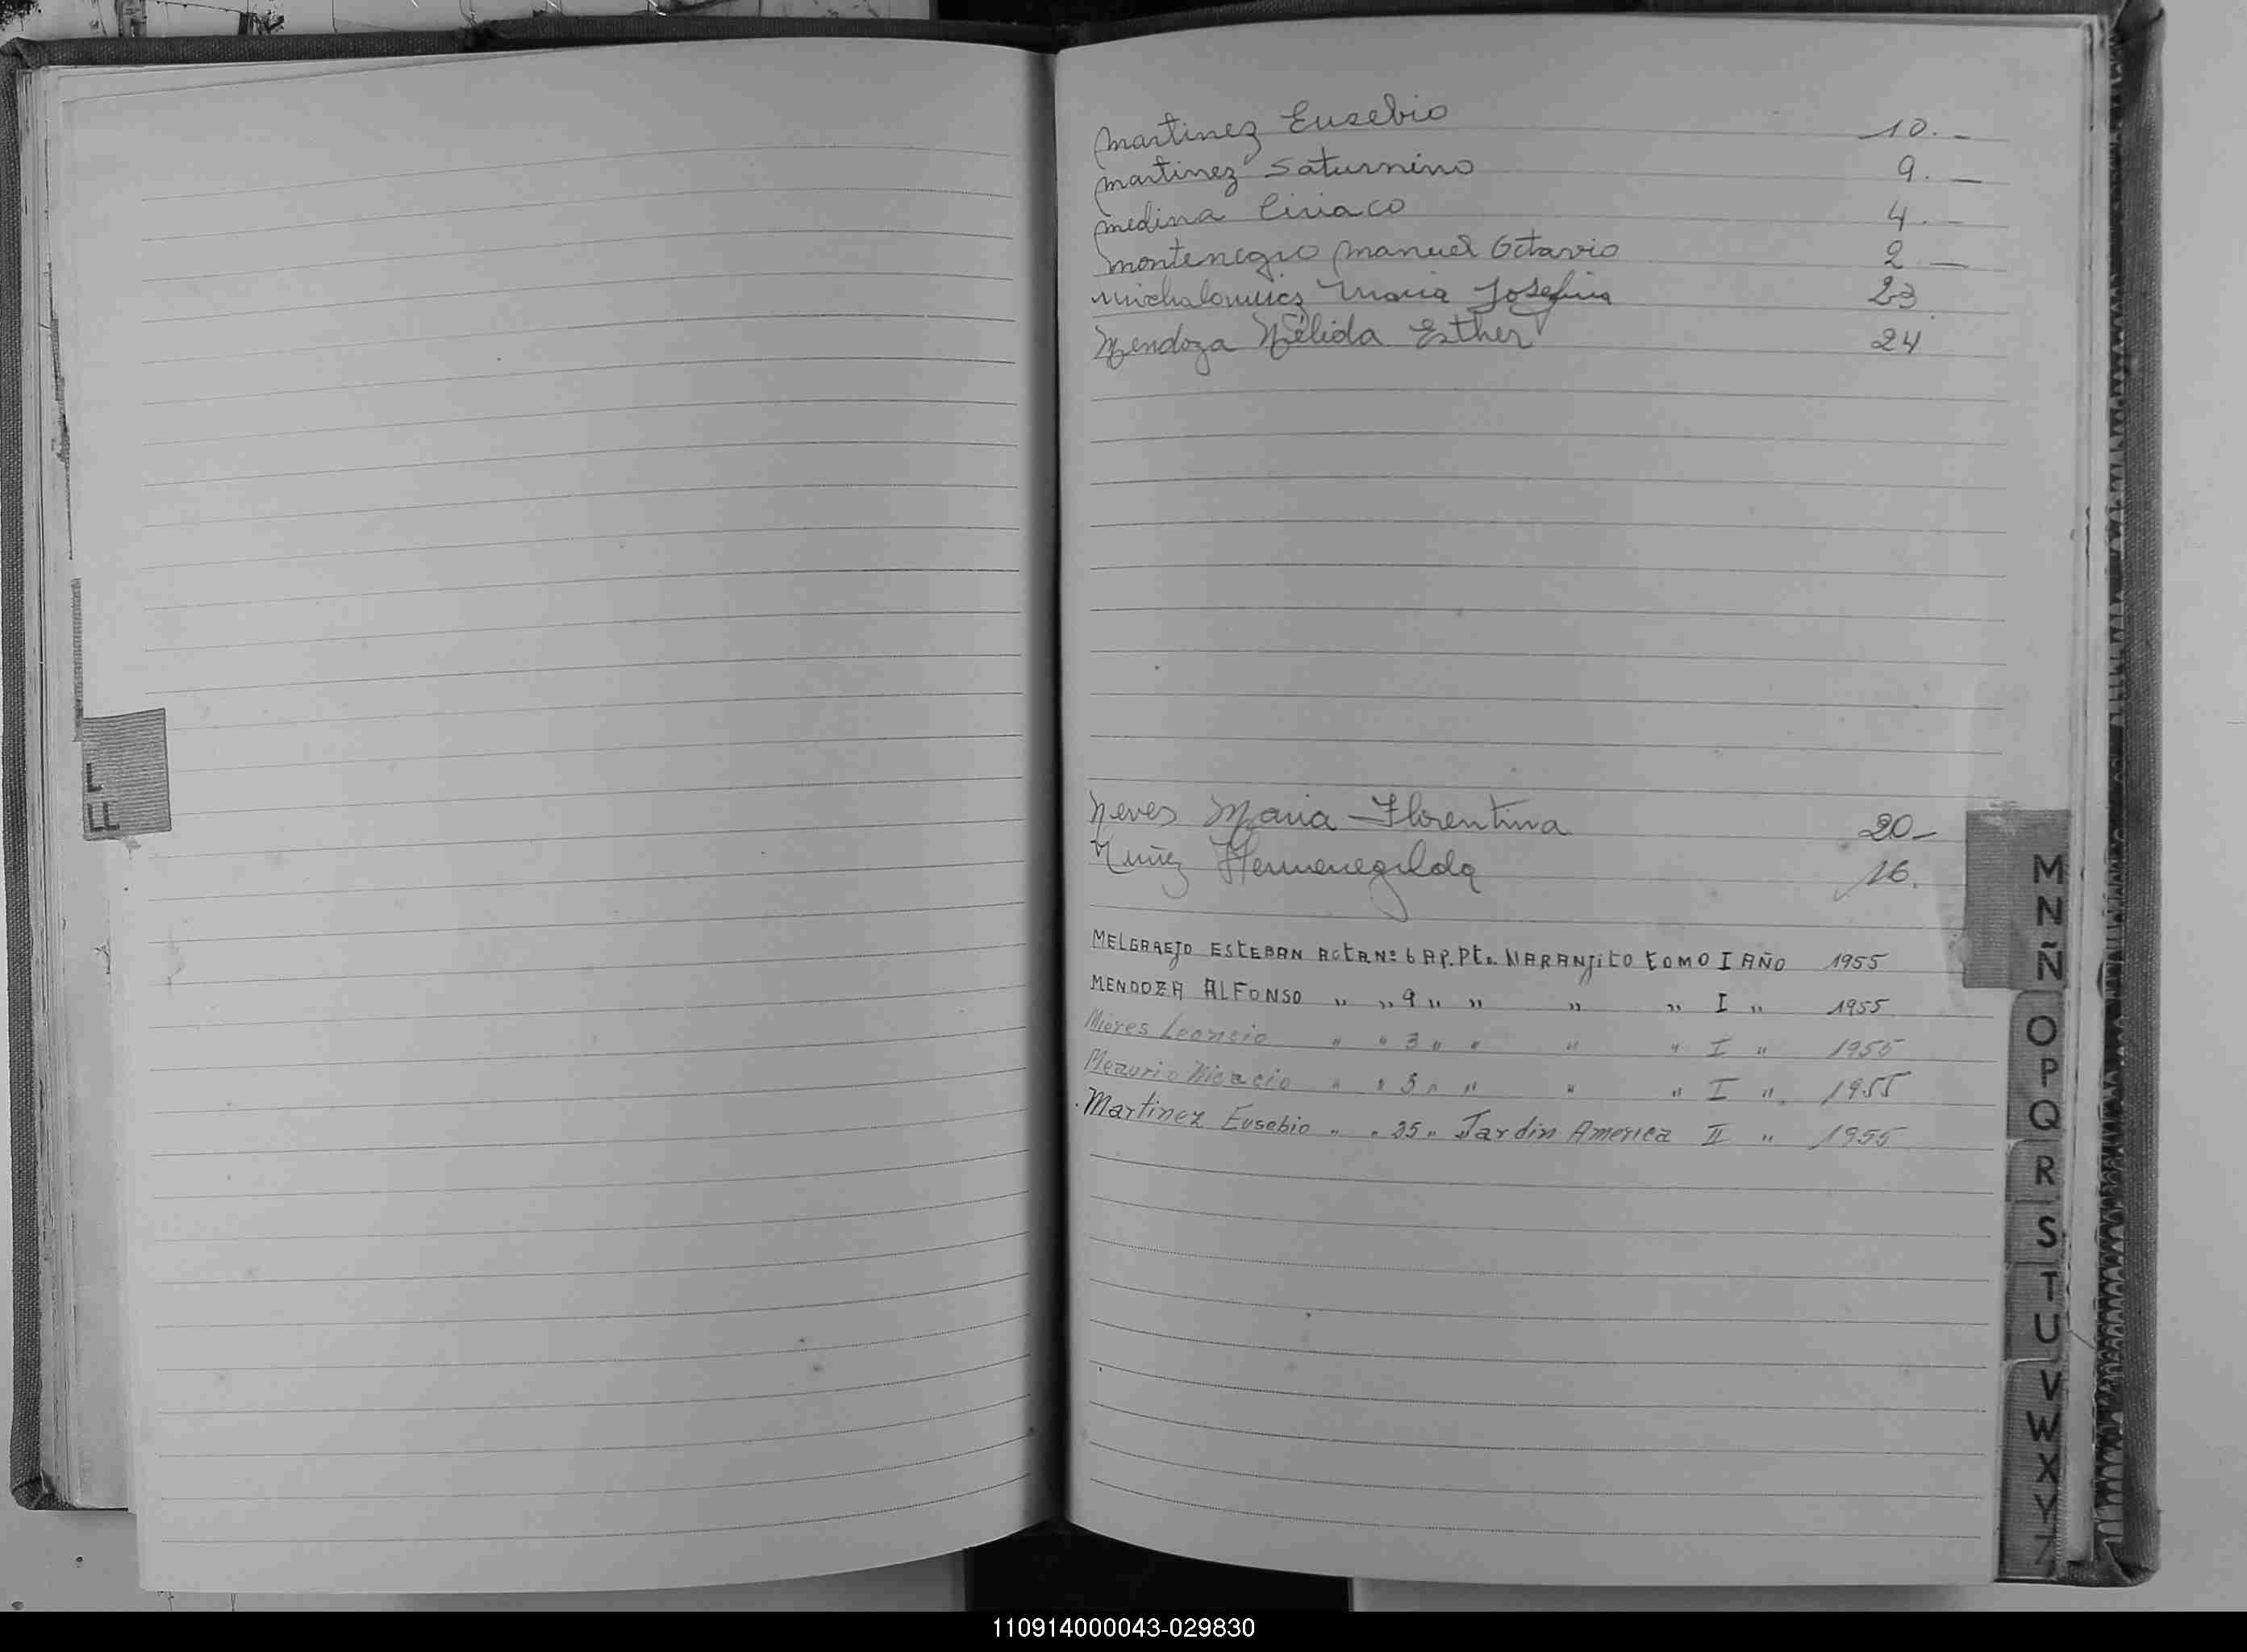 Martinez Eusebio 10.—
Martinez Saturnino 9.—
Medina Ciriaco 4.—
Montenegro Manuel Octavio 2 —
Michalowicz Maria Josefina 23
Mendoza Nélida Esther 24
Neves Maria Florentina 20—
Nuñez Hermenegilda 16.
MELGAREJO ESTEBAN ACTA Nº 6 AP. Pto. NARANJITO TOMO I AÑO 1955
MENDOZA ALFONSO " " 9 " " " " I " 1955
Mieres Leoncio " " 3 " " " " I " 1955
Nicacio " " 5 " " " " I " 1955
Martinez Eusebio " " 35 " Jardin America II " 1955
L
LL
M
N
Ñ
O
P
Q
R
S
T
U
V
W
X
Y
Z
110914000043-029830